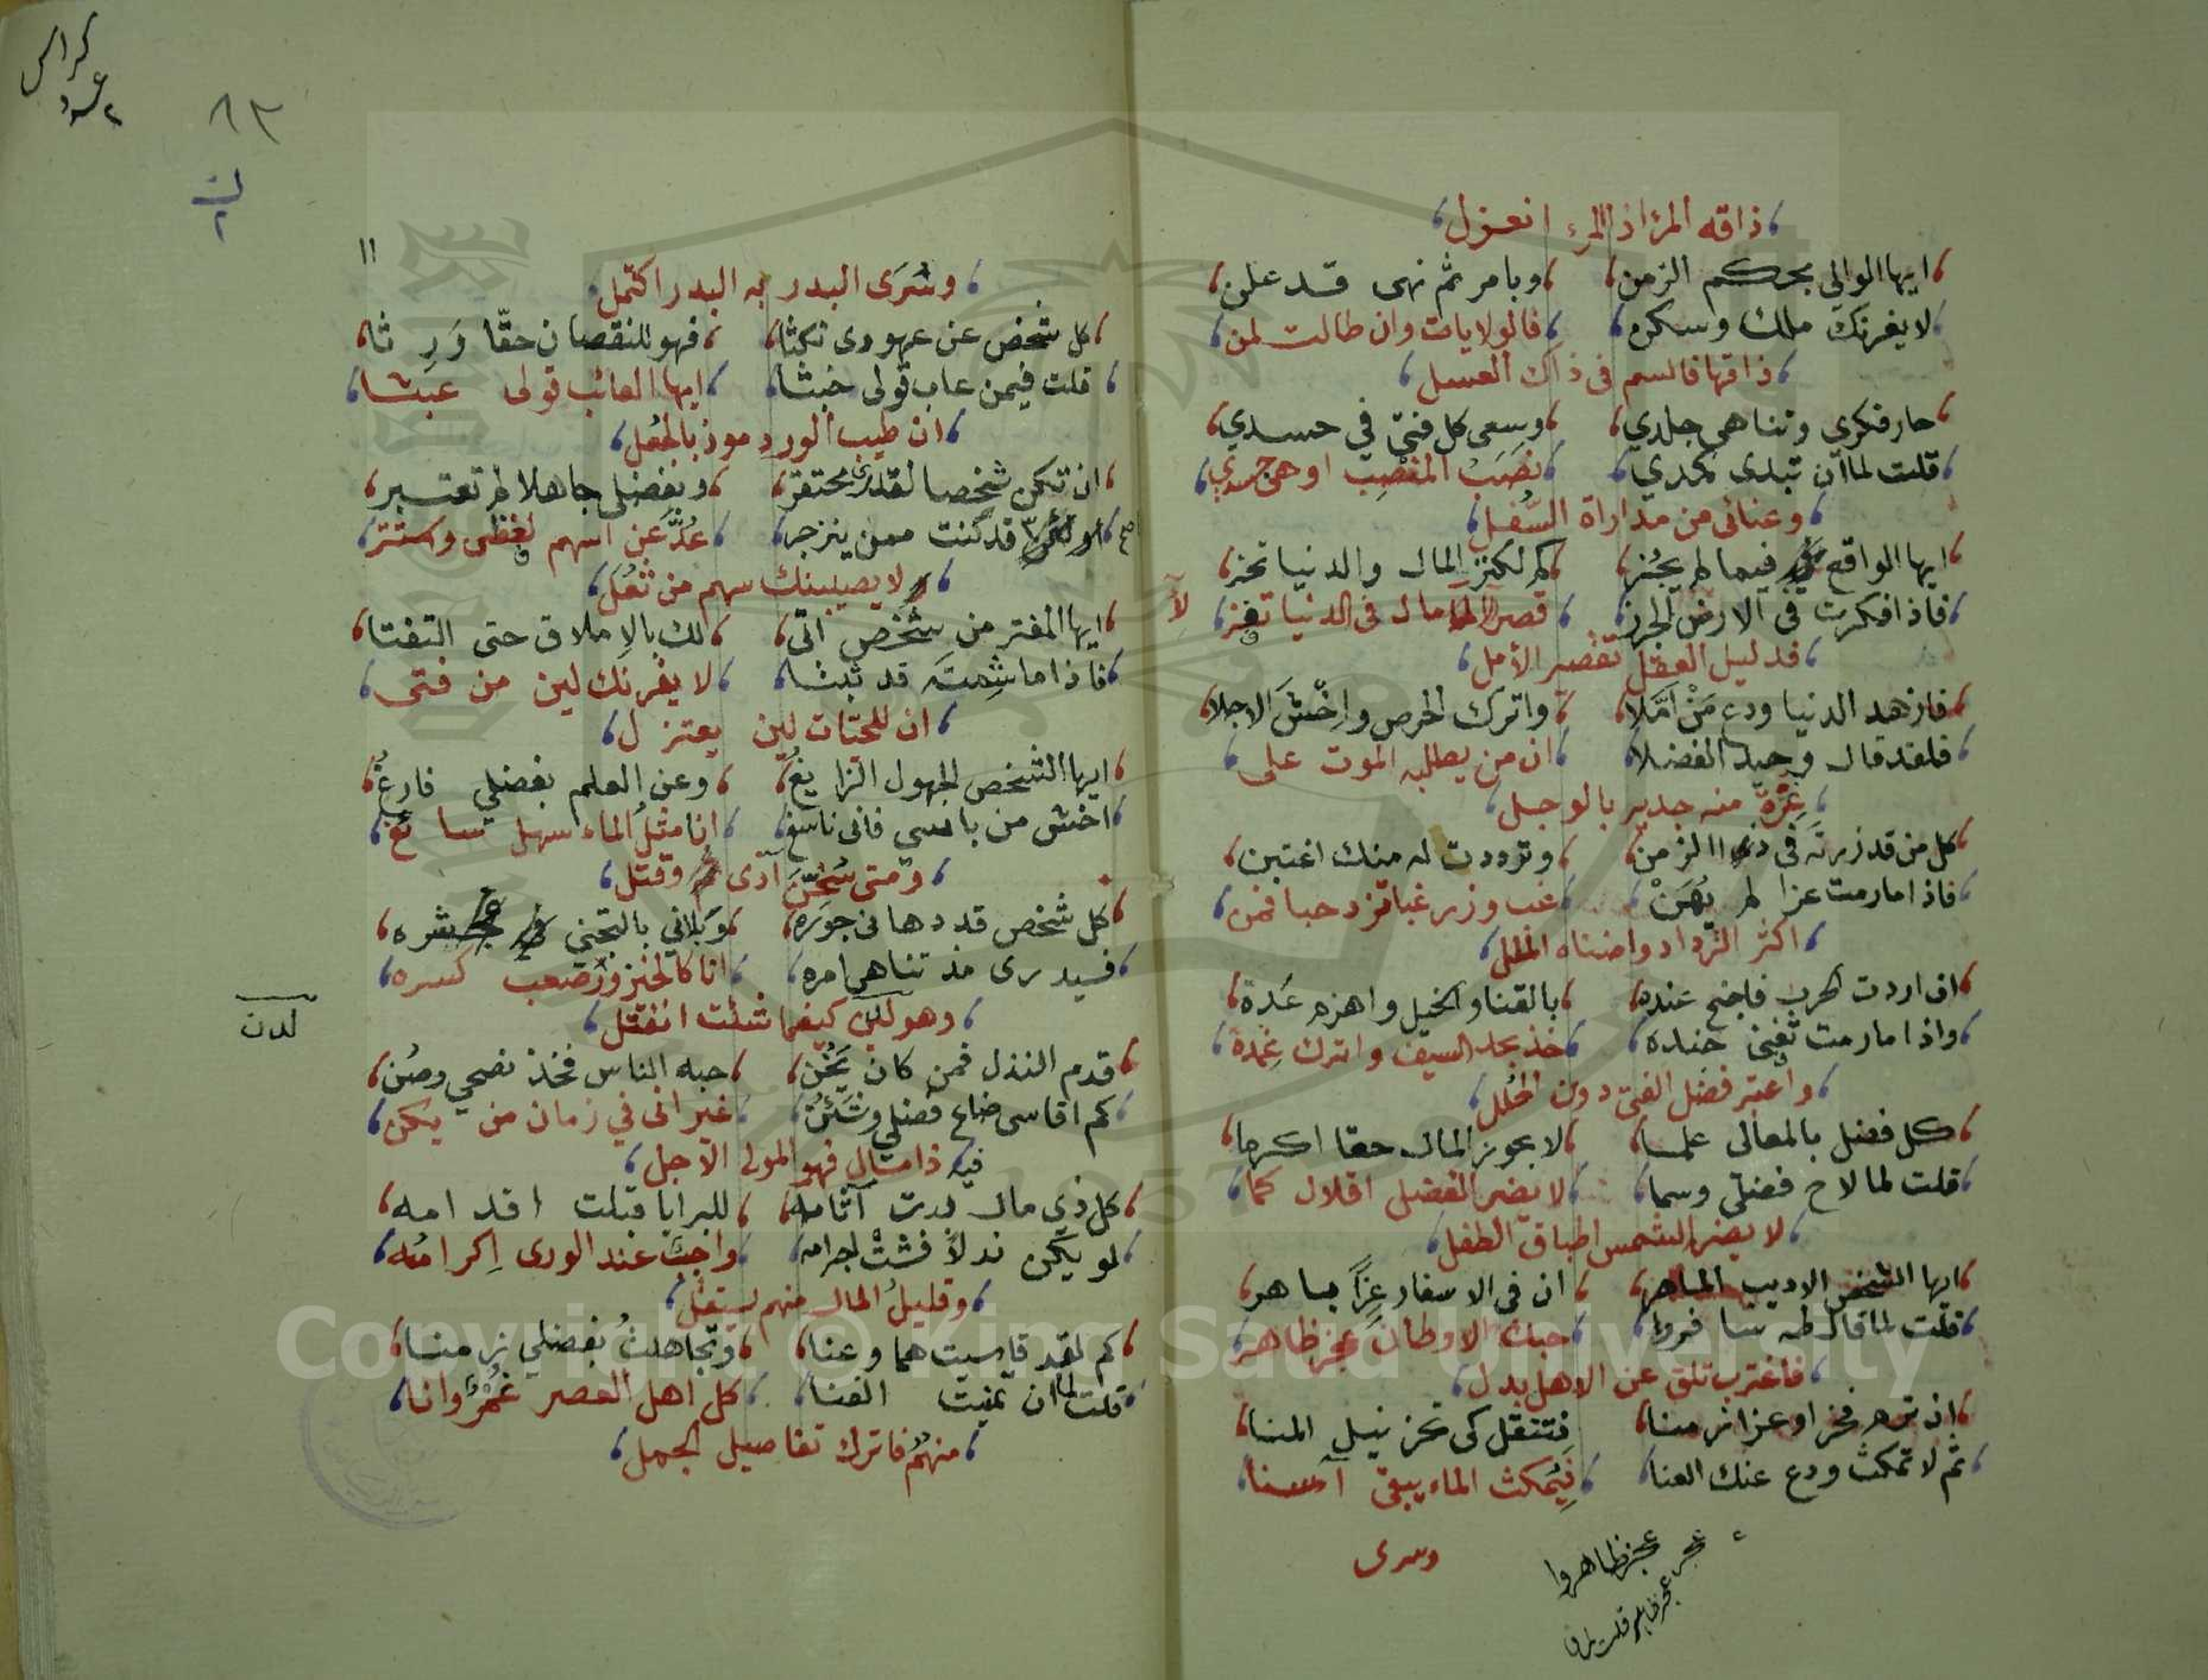 ذاقه المرء اذا المرء انعزل
ايها الوالي بحكم الزمن وبامر ثم نهى قد علن
لا يغرنك ملك وسكن فالولايات وان طالت لمن
ذاقها فالسم في ذاك العسل
حار فكري وتناهى جلدي وسعى كل فتى في حسدي
قلت لما ان تبدى نكدي نصب المنصب اوهى جسدي
وعنائي من مداراة السفل
ايها الواقع فيما لم يجز كم لكنز المال والدنيا تحز
فاذا فكرت في الارض الجرز قصر الآمال في الدنيا تفز
فدليل العقل تقصير الأمل
فازهد الدنيا ودع من امّلا واترك الحرص واخش الاجلا
فلقد قال وحيد الفضلا ان من يطلبه الموت على
غرة منه جدير بالوجل
كل من قد زرته في ذا الزمن وتوددت له منك اغتبن
فاذا مارمت عزا لم يهن غب وزر غبا تزد حبا فمن
اكثر الترداد واضناه الملل
ان اردت الحرب فاجنح عنده بالقنا والخيل واهزم عدة
واذا مارمت تفني جنده خذ بحد السيف واترك غمده
واعتبر فضل الفتى دون الحلل
كل فضل بالمعالي علما لا بحوز المال حقا اكرما
قلت لما لاح فضلي وسما لا يضر الفضل اقلال كما
لا يضر الشمس اطباق الطفل
ايها الشخص الاديب الماهر ان في الاسفار عزا باهر
قلت لما قال طه سافروا حبك الاوطان عجز ظاهر
فاغترب تلق عن الاهل بدل
ان ترم فخرا وعزا زمنا فتنقل كي تحز نيل المنا
ثم لا تمكث ودع عنك العنا فبمكث الماء يبقى آسنا
وسرى
عجز ظاهروا
وسُرَى البدر به البدر اكتمل
كل شخص عن عهودي نكثا فهو للنقصان حقّا وَرِثا
قلت فيمن عاب قولي خبثا ايها العائب قولي عبثا
ان طيب الورد موذ بالجعل
ان تكن شخصا لقدري محتقر وبفضلي جاهلا لم تعتبر
قد كنت ممن ينزجر عُدَّ عن اسهم لفظي واستتر
لا يصيبنك سهم من ثعل
ايها المغتر من شخص اتى لك بالاملاق حتى التفتا
فاذا ما شمته قد ثبتا لا يغرنك لين من فتى
ان للحيات لين يعتزل
ايها الشخص الجهول الزايغ وعن العلم بفضلي فارغ
اخش من باسي فاني ناسغ انا مثل الماء سهل سائغ
ومتى سخن آذى وقتل
كل شخص قد دهاني جوره وبلاني بالتجني شره
فسيدرى مذ تناهى امره انا كالخيزور صعب كسره
وهو لين كيفما شئت انفتل
لدن
قدم النذل فمن كان يخن حبه الناس فخذ نصحي وصن
كم اقاسي ضاع فضلي غير اني في زمان من يكن
فيه ذا مال فهو المولى الاجل
كل ذي مال بدت آثامه للبرايا قبلت اقدامه
لو يكن نذلاً فشت اجرامه واجب عند الورى اكرامه
وقليل المال منهم يستقل
كم لقد قاسيت هما وعنا وتجاهلت بفضلي زمنا
قلت لما ان تمنيت الفنا كل اهل العصر غمر وانا
منهم فاترك تفاصيل الجمل
كراس
٨٣
١١